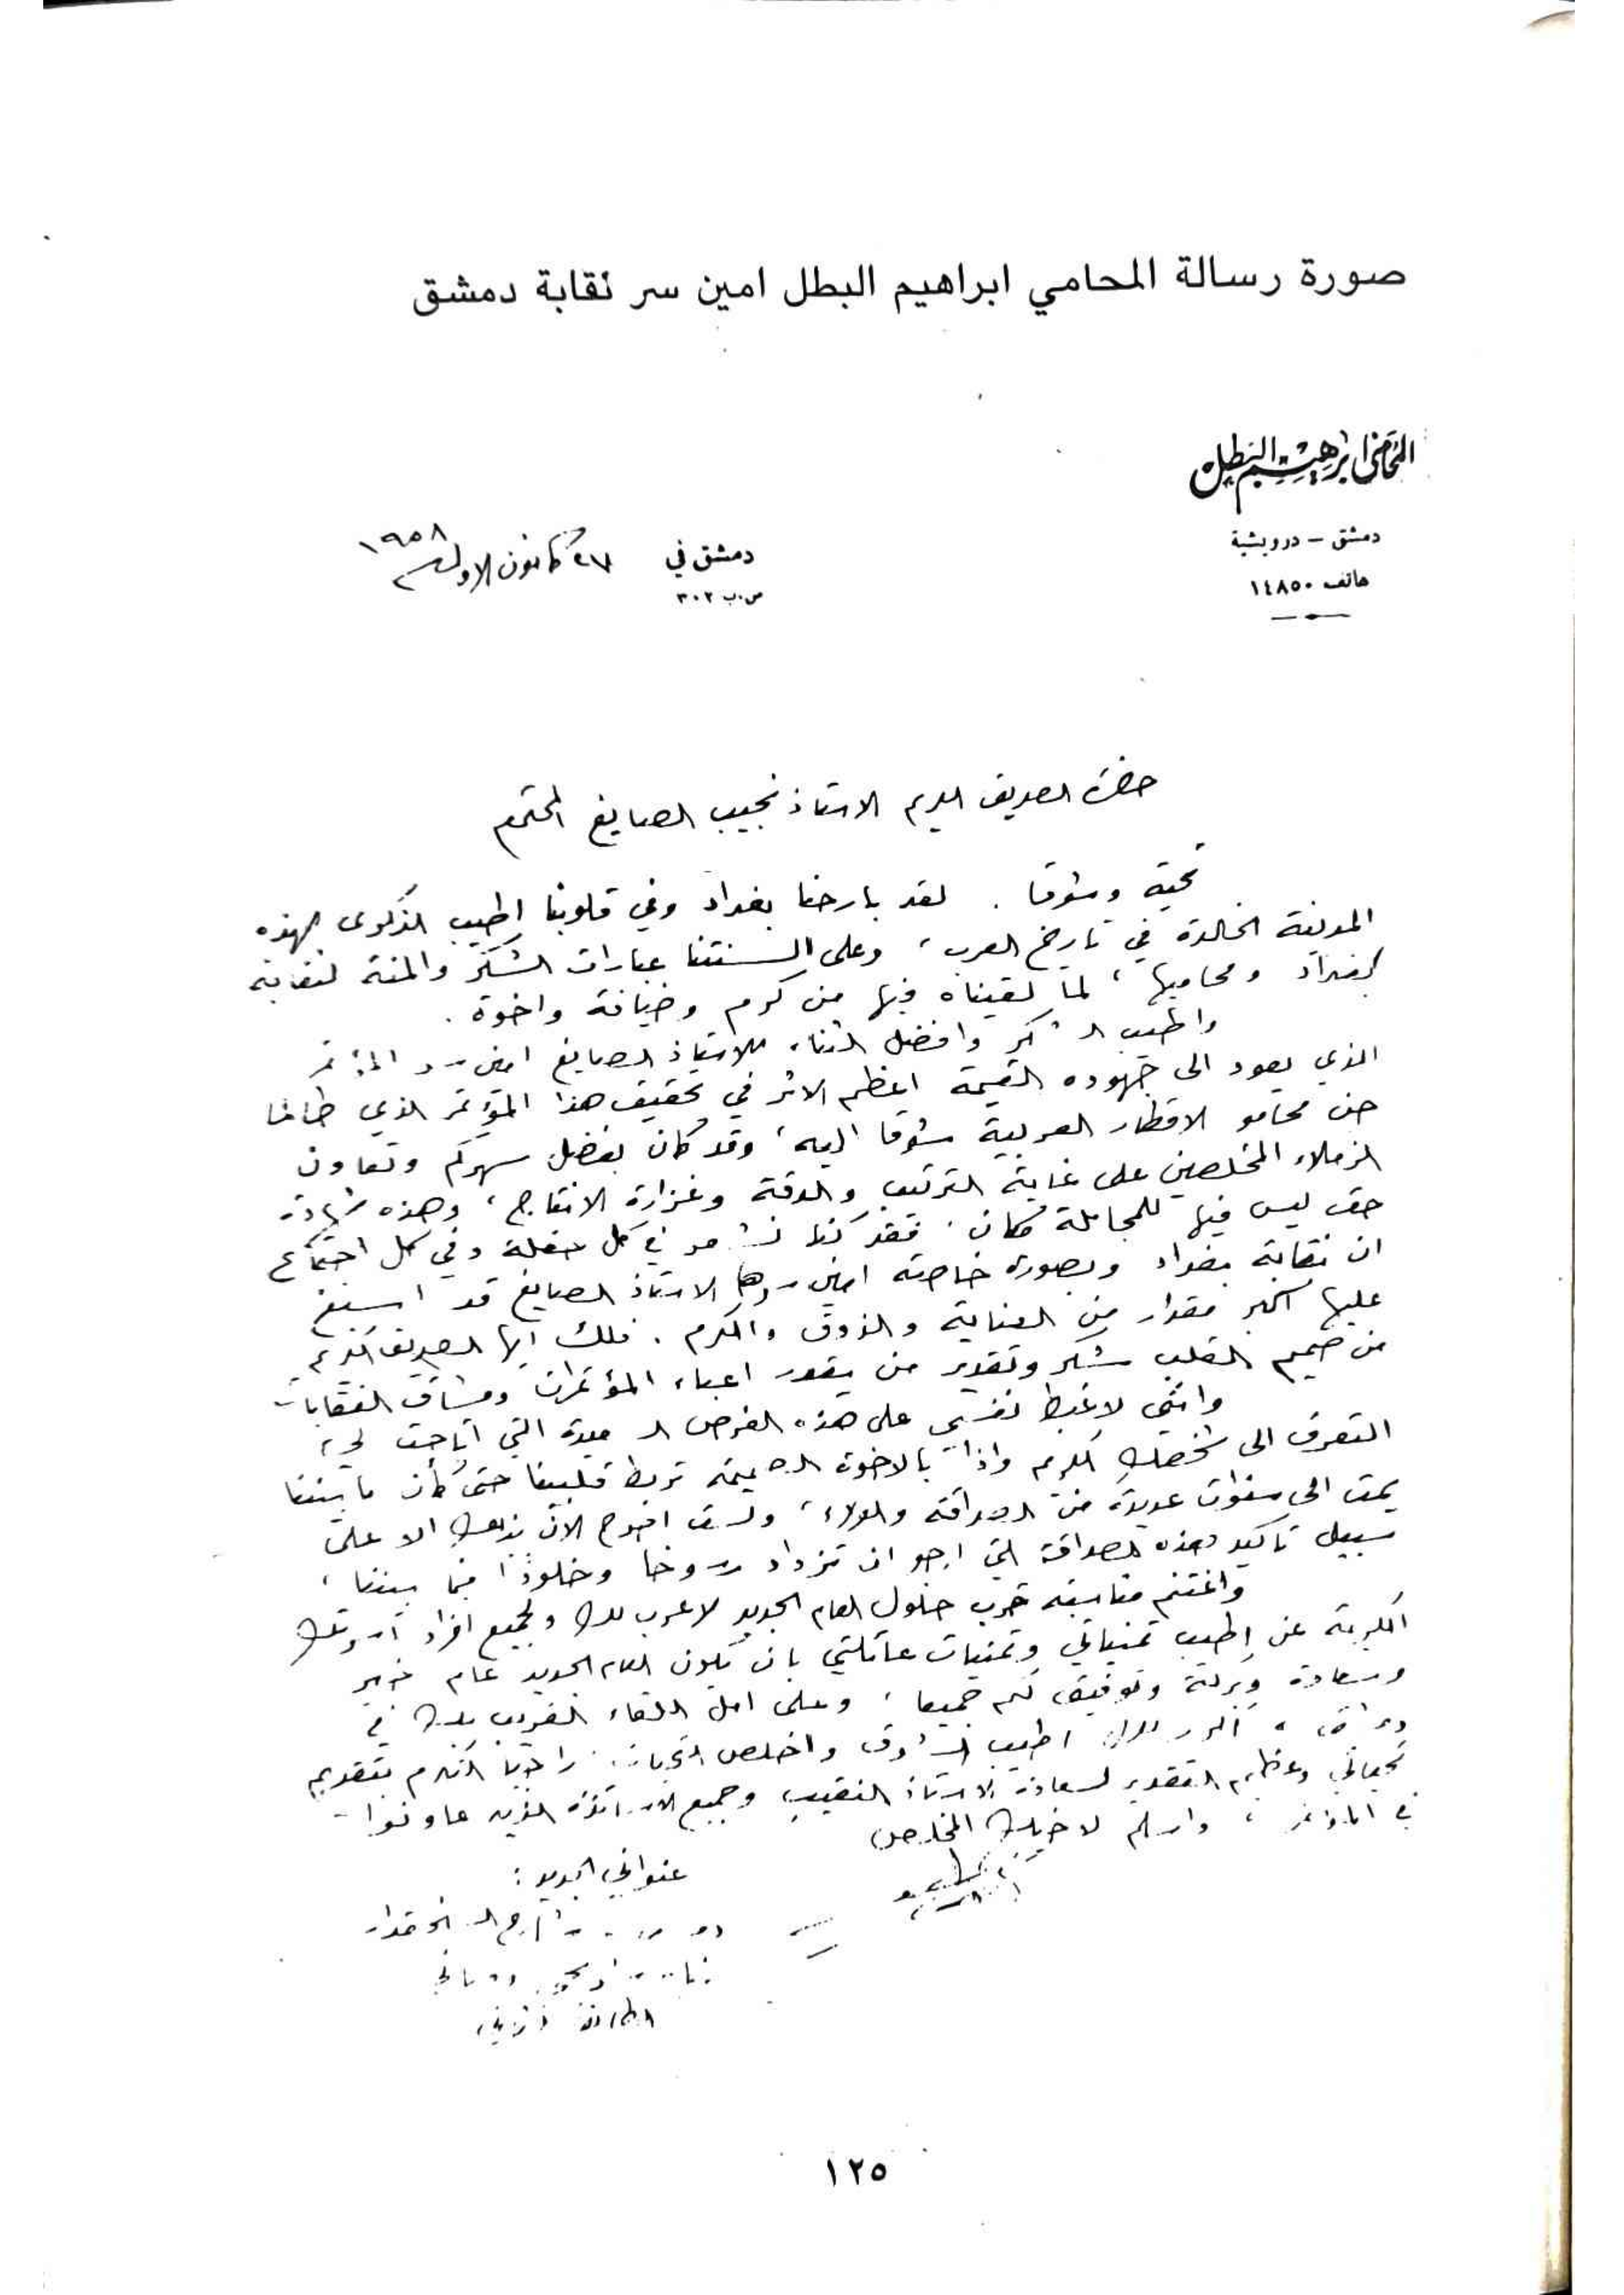 صورة رسالة المحامي ابراهيم البطل امين سر نقابة دمشق
المحامي ابراهيم البطل
دمشق - درويشية
هاتف ١٤٨٥٠
دمشق في ٢٧ كانون الاول ١٩٥٨
ص.ب ٣٠٢
حضرة الصديق الكريم الاستاذ نجيب الصايغ المحترم
تحية وشوقا . لقد بارحنا بغداد وفي قلوبنا اطيب الذكرى لهذه
المدينة الخالدة في تاريخ العرب ، وعلى السنتنا عبارات الشكر والمنة لنقابة
بغداد ومحاميها ، لما لقيناه فيها من كرم وضيافة واخوة .
واطيب الشكر وافضل الثناء للاستاذ الصايغ امين سر المؤتمر
الذي يعود الى جهوده القيمة اعظم الاثر في تحقيق هذا المؤتمر الذي طالما
حن محامو الاقطار العربية شوقا اليه ، وقد كان بفضل سهركم وتعاون
الزملاء المخلصين على غاية الترتيب والدقة وغزارة الانتاج ، وهذه شهادة
حق ليس فيها للمجاملة مكان ، فقد كنا نشعر في كل حفلة وفي كل اجتماع
ان نقابة بغداد وبصورة خاصة امين سرها الاستاذ الصايغ قد اسبغ
عليها اكبر مقدار من العناية والذوق والكرم . فلك ايها الصديق الكريم
من صميم القلب شكر وتقدير من يقدر اعباء المؤتمرات ومشاق النقابات
وانني لاغبط نفسي على هذه الفرص السعيدة التي اتاحت لي ،
التعرف الى شخصك الكريم واذا بالاخوة الصميمة تربط قلبينا حتى كأن ما بيننا
يمت الى سنوات عديدة من الصداقة والولاء ، ولست ابوح الان بذلك الا على
سبيل تاكيد هذه الصداقة التي ارجو ان تزداد رسوخا وخلودا فيما بيننا ،
واغتنم مناسبة قرب حلول العام الجديد لاعرب لك ولجميع افراد اسرتك
الكريمة عن اطيب تمنياتي وتمنيات عائلتي بان يكون العام الجديد عام خير
وسعادة وبركة وتوفيق لكم جميعا ، وعلى امل اللقاء القريب بك في
دمشق ، اكرر لك اطيب الشوق واخلص التحيات . راجيا التكرم بتقديم
تحياتي وعظيم التقدير لسعادة الاستاذ النقيب وجميع الاساتذة الذين عاونوا
في المؤتمر ، واسلم لاخيك المخلص
عنواني الجديد :
١٢٥